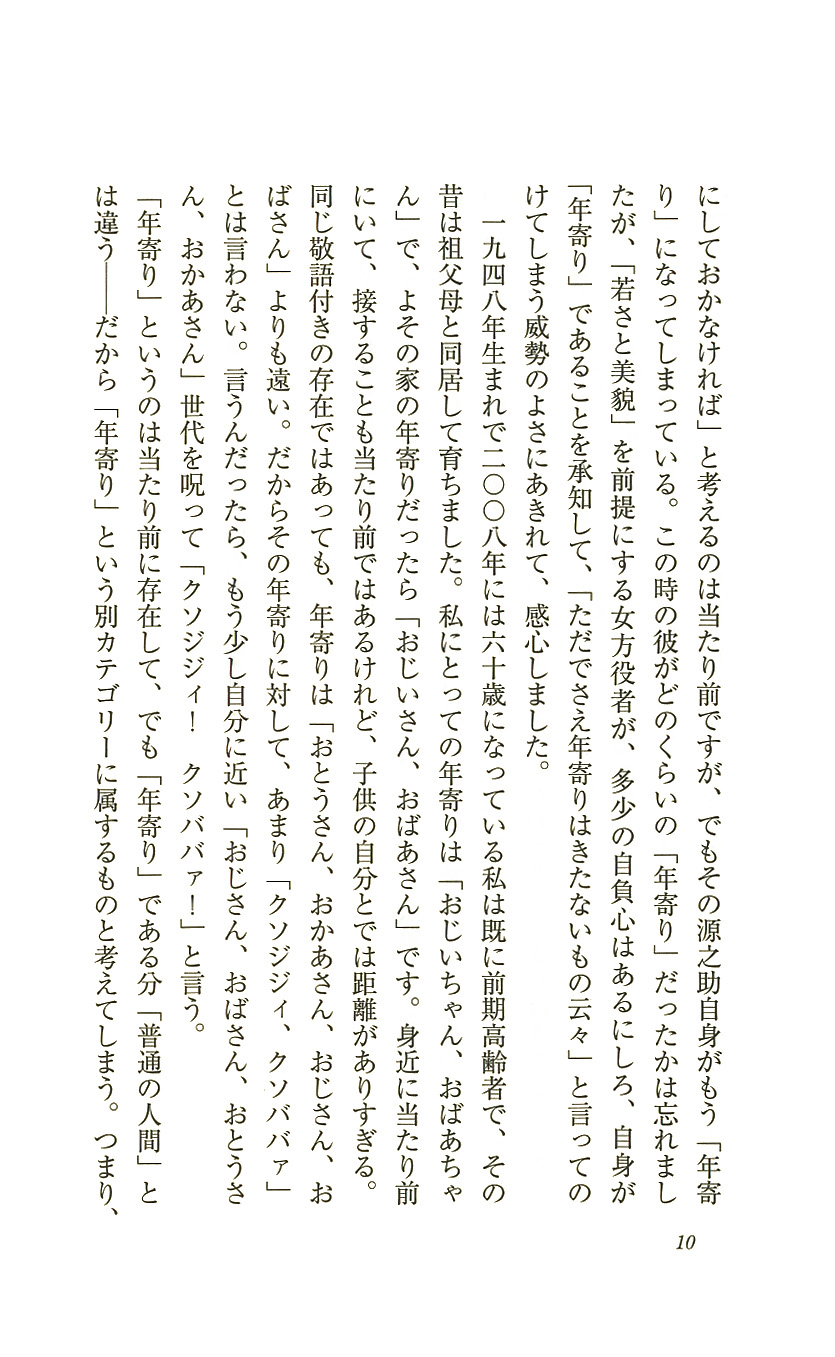 にしておかなければ」と考えるのは当たり前ですが、でもその源之助自身がもう「年寄
り」になってしまっている。この時の彼がどのくらいの「年寄り」だったかは忘れまし
たが、「若さと美貌」を前提にする女方役者が、多少の自負心はあるにしろ、自身が
「年寄り」であることを承知して、「ただでさえ年寄りはきたないもの云々」と言っての
けてしまう威勢のよさにあきれて、感心しました。
一九四八年生まれで二〇〇八年には六十歳になっている私は既に前期高齢者で、その
昔は祖父母と同居して育ちました。私にとっての年寄りは「おじいちゃん、おばあちゃ
ん」で、よその家の年寄りだったら「おじいさん、おばあさん」です。身近に当たり前
にいて、接することも当たり前ではあるけれど、子供の自分とでは距離がありすぎる。
同じ敬語付きの存在ではあっても、年寄りは「おとうさん、おかあさん、おじさん、お
ばさん」よりも遠い。だからその年寄りに対して、あまり「クソジジィ、クソババァ」
とは言わない。言うんだったら、もう少し自分に近い「おじさん、おばさん、おとうさ
ん、おかあさん」世代を呪って「クソジジィ！　クソババァ！」と言う。
「年寄り」というのは当たり前に存在して、でも「年寄り」である分「普通の人間」と
は違う――だから「年寄り」という別カテゴリーに属するものと考えてしまう。つまり、
10